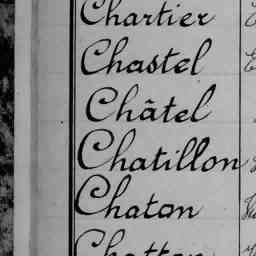 Chartier
Chastel
Châtel
Chatillon
Chaton